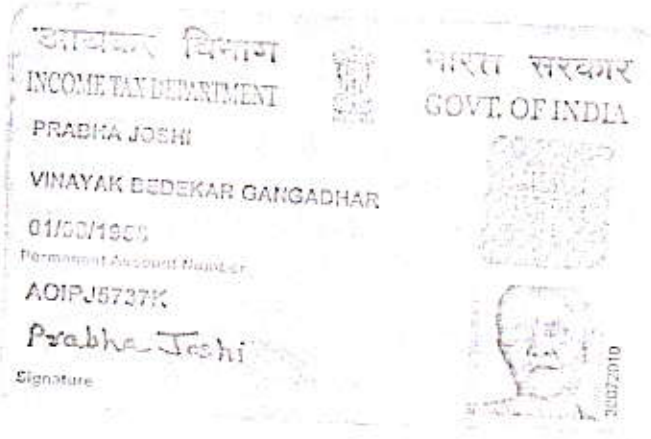 आयकर विभाग
INCOME TAX DEPARTMENT
भारत सरकार
GOVT. OF INDIA
PRABHA JOSHI
VINAYAK BEDEKAR GANGADHAR
Permanent Account Number
AOIPJ5737K
Prabha Joshi
Signature